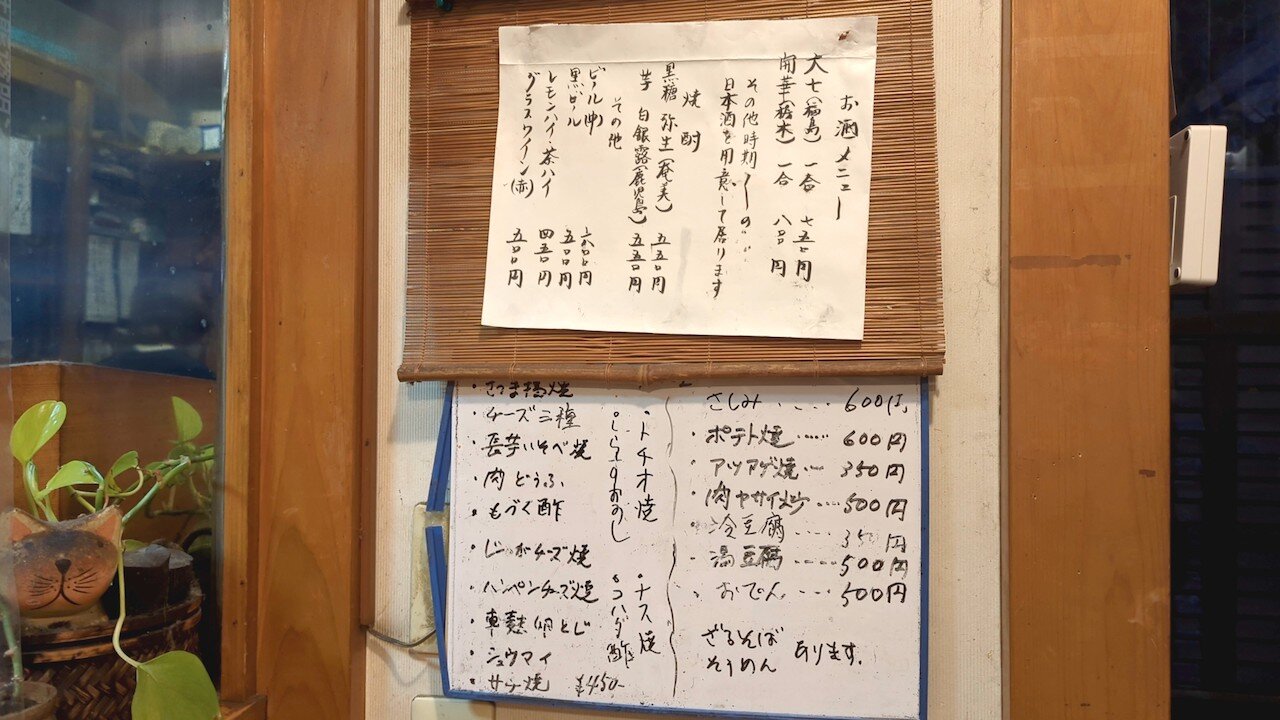 お酒メニュー
大七(福島) 一合 七五〇円
開華(栃木) 一合 八〇〇円
その他時期
日本酒を用意して居ります
焼酎
黒糖 弥生(奄美) 五五〇円
芋 白銀露(鹿児島) 五五〇円
その他
ビール(中) 六〇〇円
黒ビール 五〇〇円
レモンハイ・茶ハイ 四五〇円
グラスワイン(赤) 五〇〇円
さしみ ‥‥ 600
・ポテト焼 ‥‥ 600円
・アツアゲ焼 ‥ 350円
・肉ヤサイ炒 ‥‥ 500円
・冷豆腐 ‥ 350円
・湯豆腐 ‥‥ 500円
・おでん ‥‥ 500円
ざるそば
そうめん あります.
・トチオ焼
・しらすおろし
・ナス焼
・コハダ酢
・さつま揚焼
・チーズ二種
・長芋いそべ焼
・肉どうふ
・もづく酢
・チーズ焼
・ハンペンチーズ焼
・車麩卵とじ
・シュウマイ
・焼 ¥450-